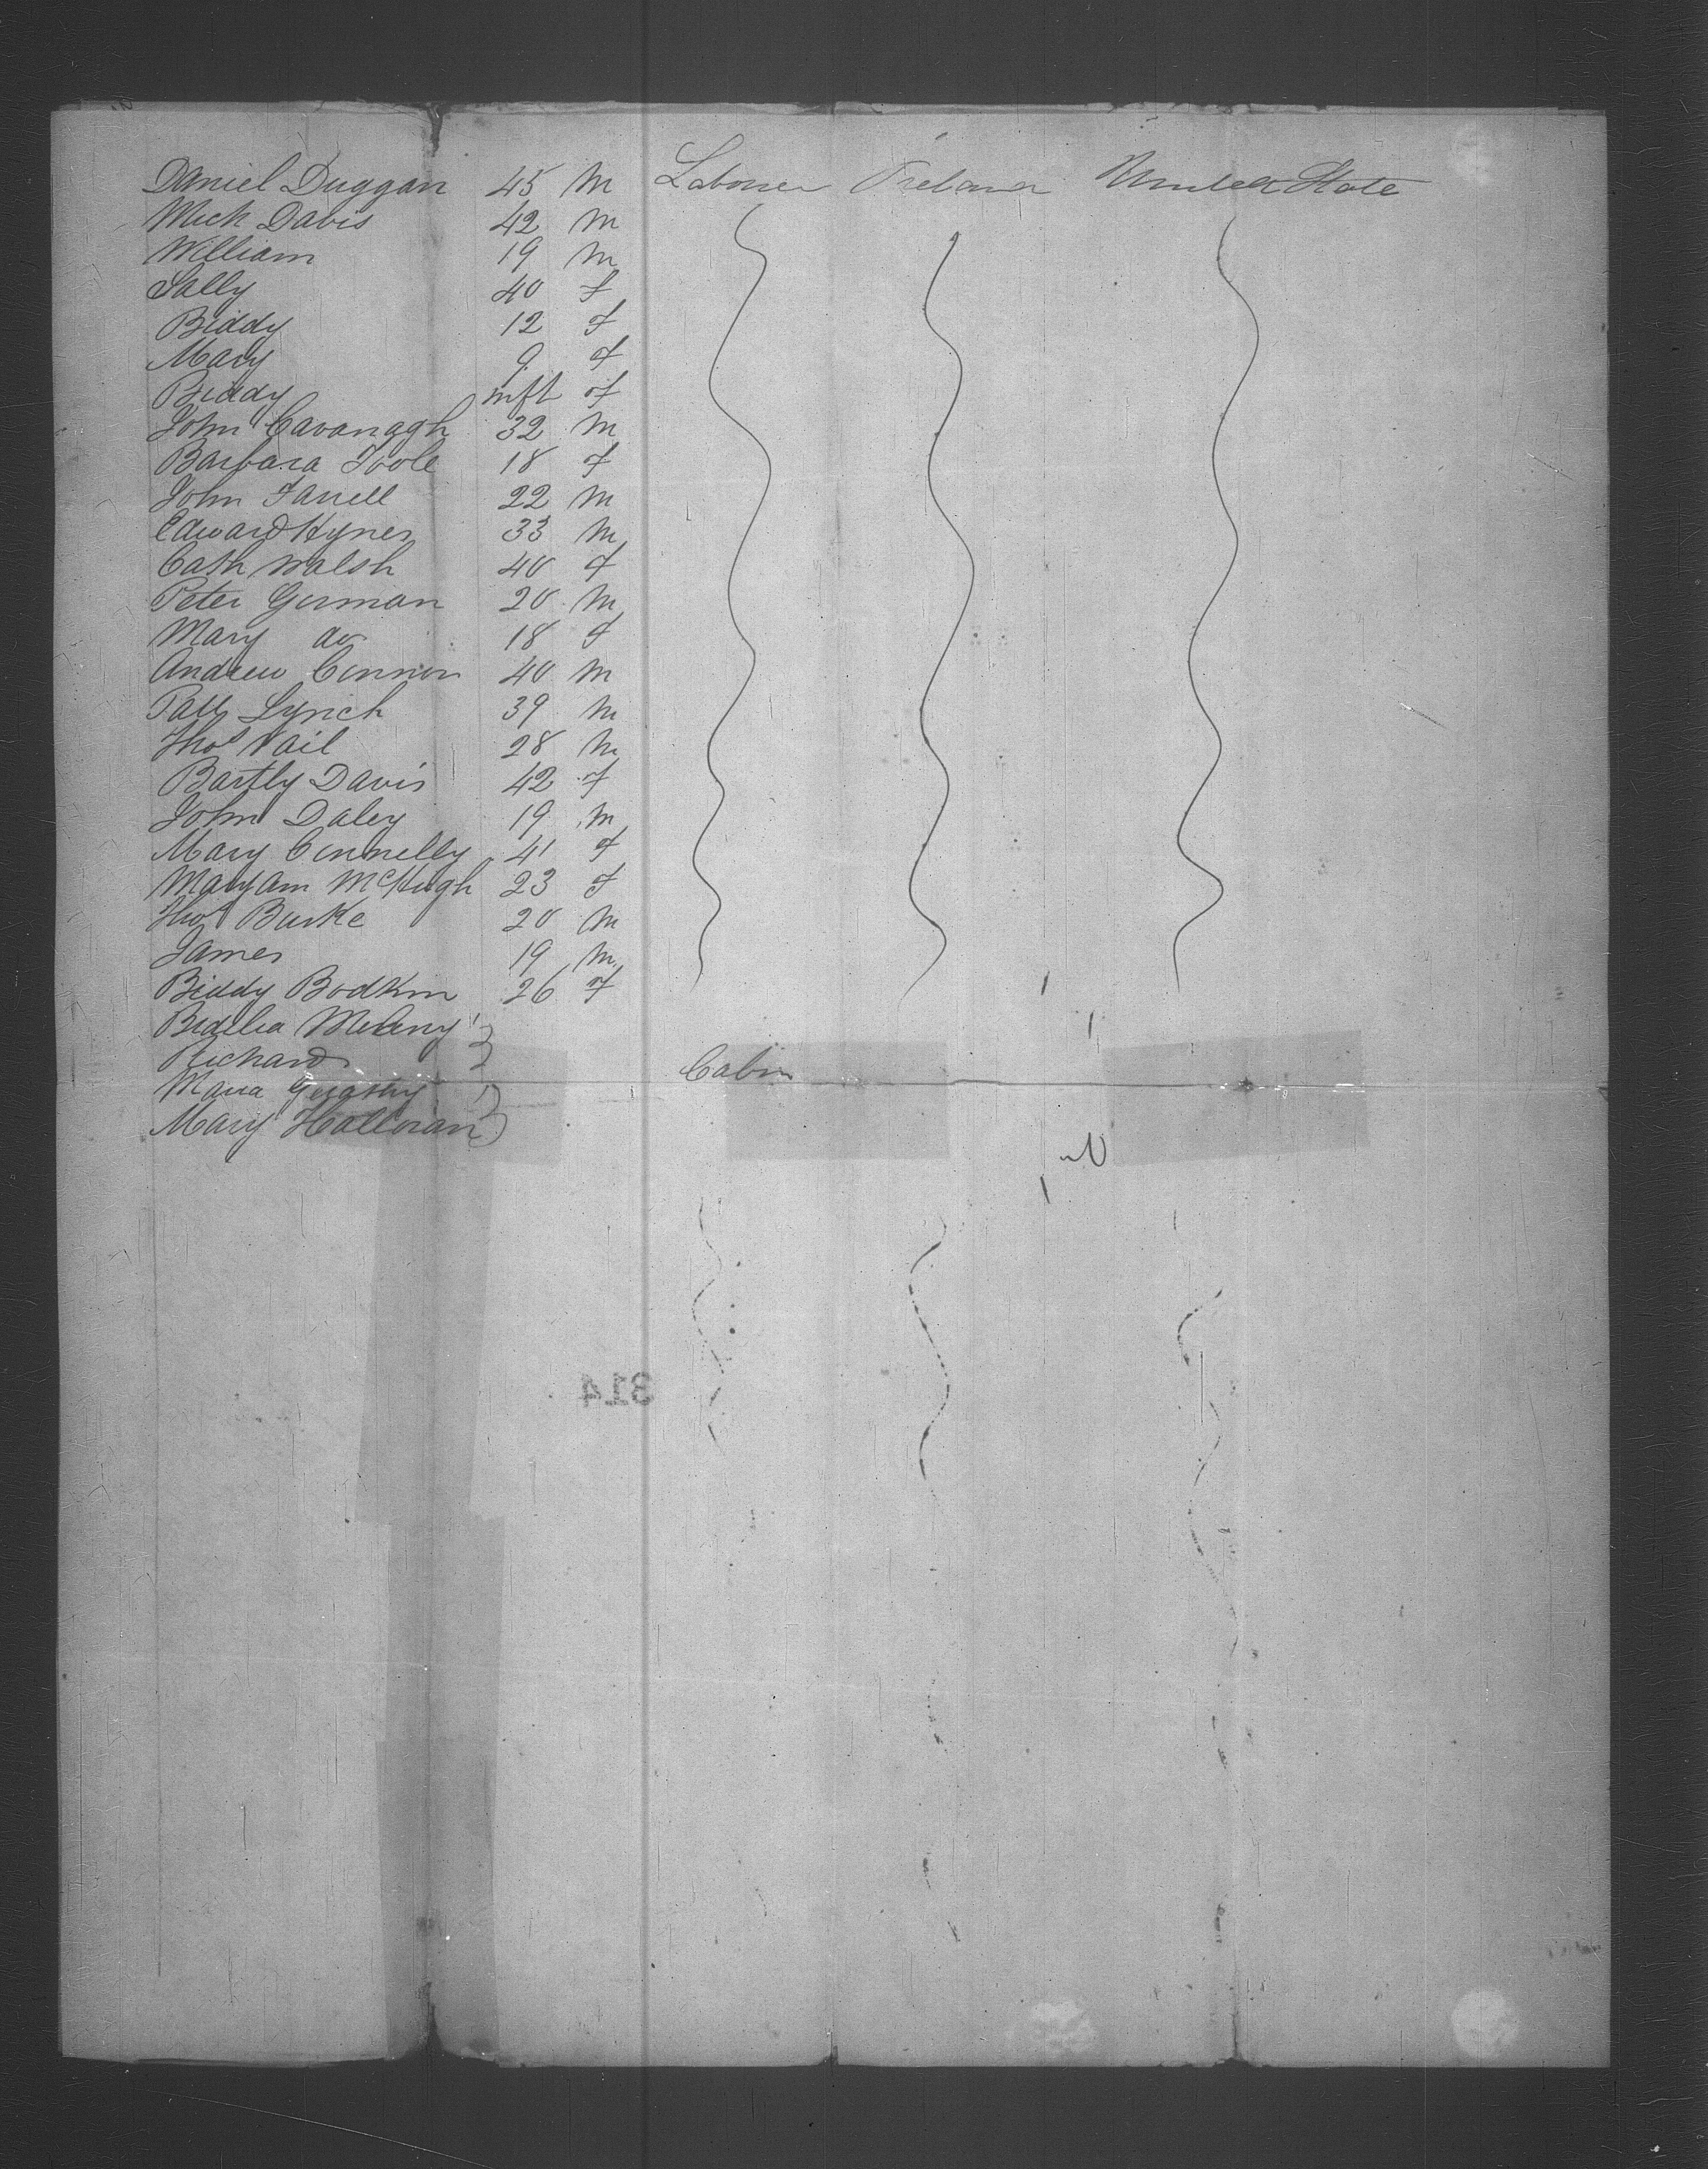 Daniel Duggan 45 m Laborer Ireland United State
Mich Davis 42 m
William 19 m
Sally 40 f
Biddy 12 f
Mary 9 f
Biddy inft f
John Cavanagh 32 m
Barbara Toole 18 f
John Farrell 22 m
Edward Hynes 33 m
Cath Walsh 40 f
Peter Gorman 20 m
Mary do 18 f
Andrew Connor 40 m
Patt Lynch 39 m
Thos Nail 28 m
Bartly Davis 42 f
John Daley 19 m
Mary Connelly 41 f
Mary Ann McHugh 23 f
Thos Burke 20 m
James 19 m
Biddy Bodkin 26 f
Bidelia
Richard
Cabin
Maria
Mary Halloran
314